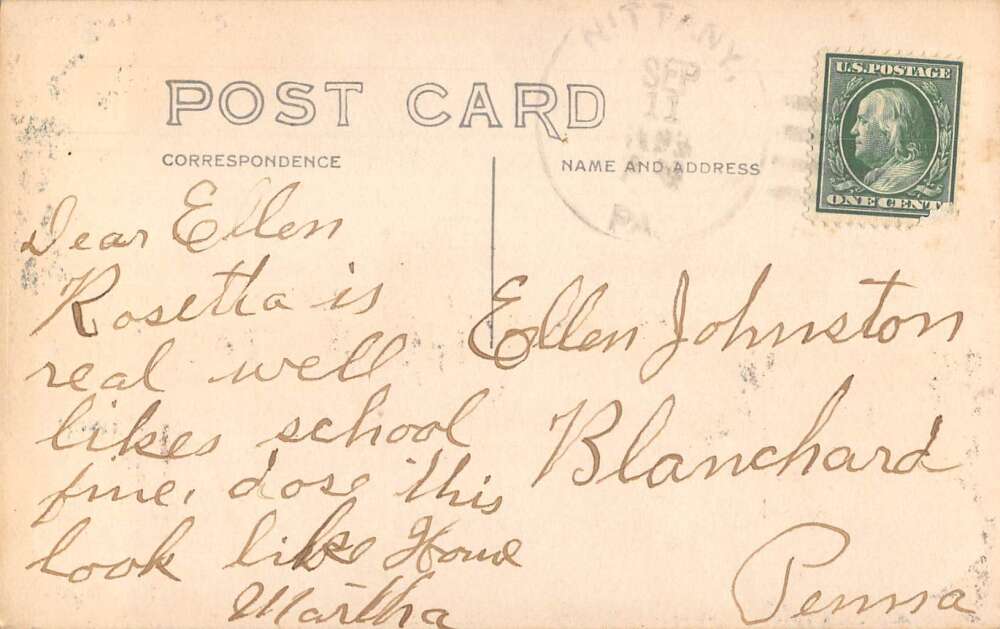 POST CARD
CORRESPONDENCE
NAME AND ADDRESS
NITTANY,
SEP
11
PA
U.S. POSTAGE
ONE CENT
Dear Ellen
Rosetta is
real well
likes school
fine. dose this
look like Home
Martha
Ellen Johnston
Blanchard
Penna